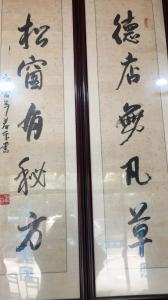 德店無凡草
松窗有秘方